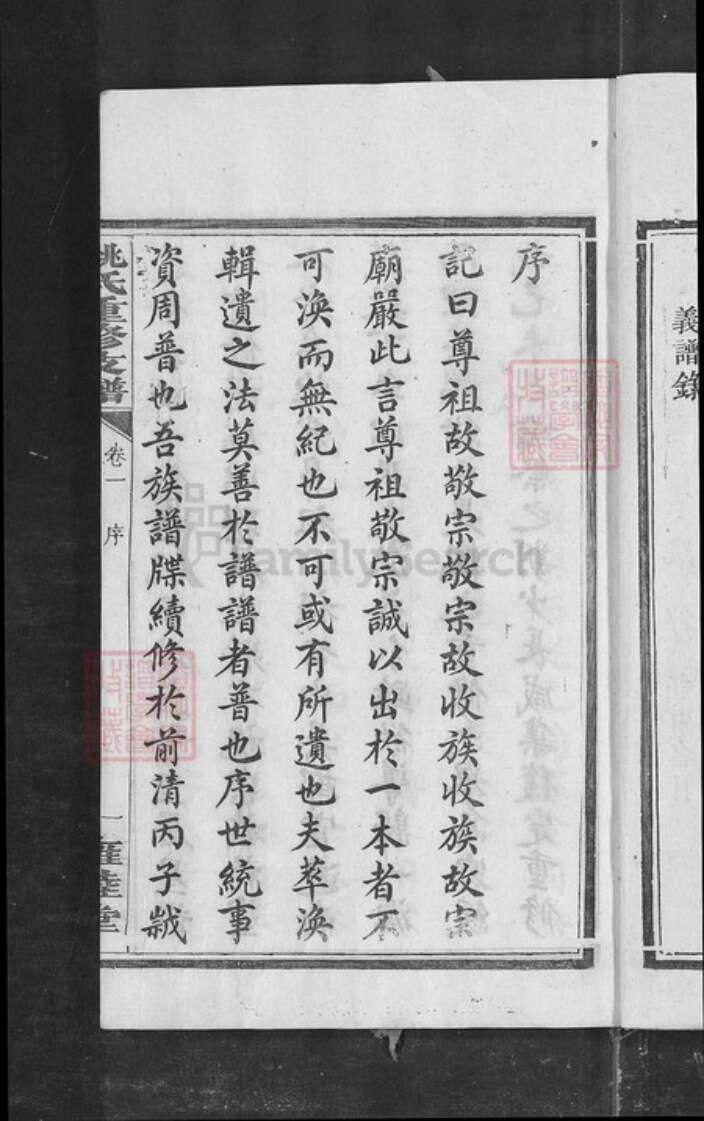 義譜錄
序
記曰尊祖故敬宗敬宗故收族收族故宗
廟嚴此言尊祖敬宗誠以出於一本者不
可渙而無紀也不可或有所遺也夫萃渙
輯遺之法莫善於譜譜者普也序世統事
資周普也吾族譜牒續修於前清丙子越
姚氏重修支譜 卷一 序 一 睦堂
FamilySearch